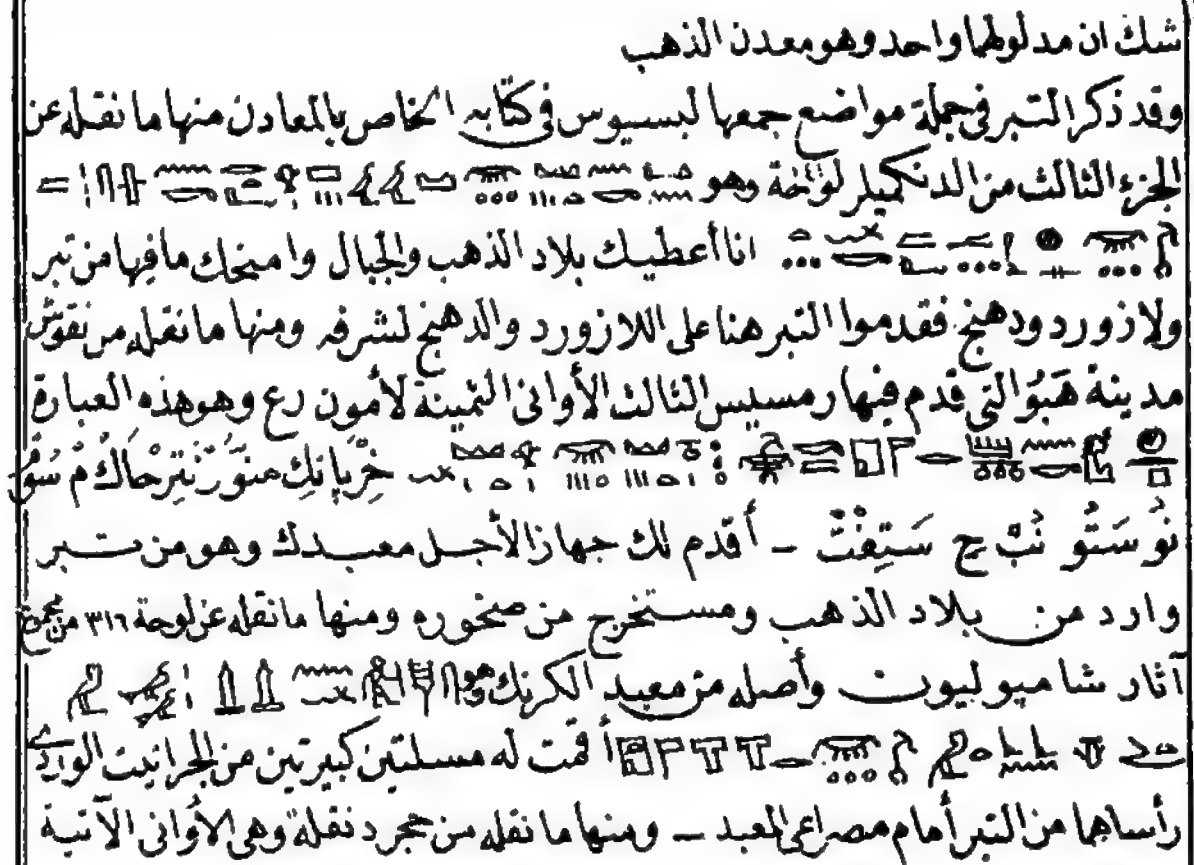 شك ان مدلولهما واحد وهو معدن الذهب
وقد ذكر التبر فى جملة مواضع جمعها لبسيوس فى كتابه الخاص بالمعادن منها ما نقله عن
الجزء الثالث من الدنكميلر لوحة وهو
انا أعطيك بلاد الذهب والجبال وامنحك مافيها من تبر
ولازورد ودهنج فقدموا التبر هنا على اللازورد والدهنج لشرفه ومنها ما نقله من نقوش
مدينة هَبُو التى قدم فيها رمسيس الثالث الأوانى الثمينة لأمون رع وهو هذه العبارة
نُو سَتُو نُبْ ح سَتِفْتْ – أقدم لك جهازا لأجل معبدك وهو من تبر
وارد من بلاد الذهب ومستخرج من صخوره ومنها مانقله عن لوحة ٣١٦ من مجموع
آثار شامبوليون وأصله من معبد الكرنك وهو
أقمت له مسلتين كبيرتين من الجرانيت الوردى
رأساهما من التبر أمام مصراعى المعبد – ومنها ما نقله من حجر دنقلة وهى الأوانى الآتية